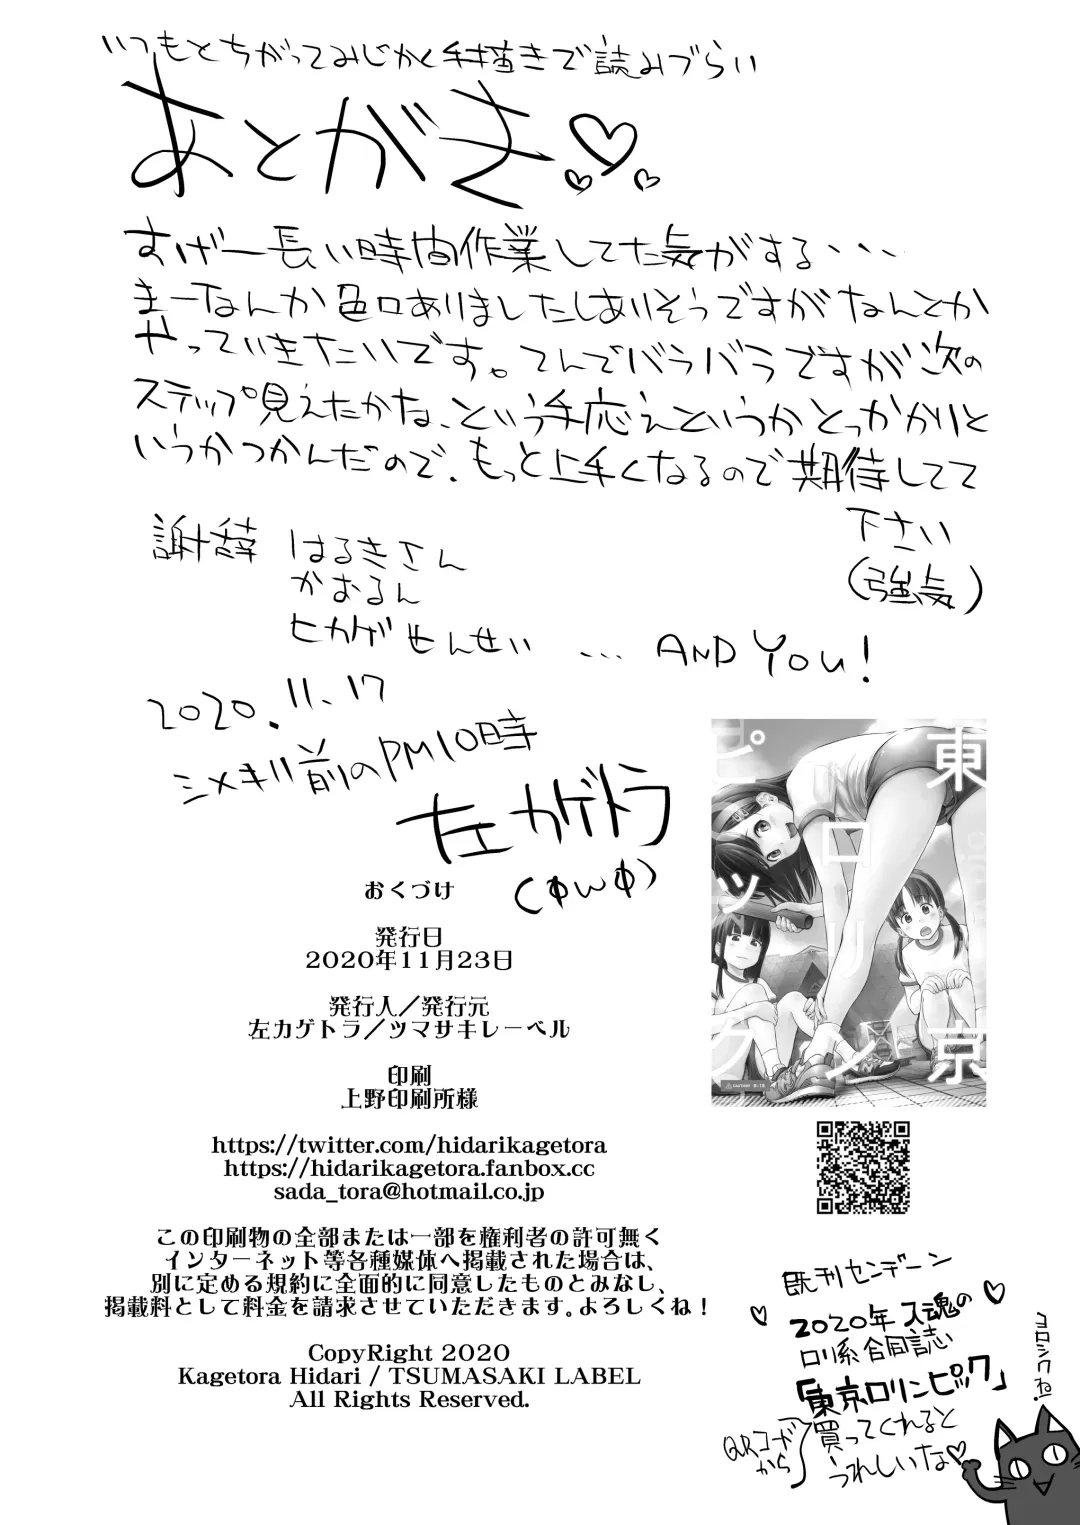 いつもとちがってみじかく手描きで読みづらい
あとがき♡
すげー長い時間作業してた気がする・・・
まーなんか色々ありましたしありそうですがなんとか
やっていきたいです。てんでバラバラですが次の
ステップ見えたかな、という手応えというかとっかかりと
いうかつかんだので、もっと上手くなるので期待してて
下さい
(強気)
謝辞 はるきさん
かおるん
ヒカゲせんせい ... AND YOU!
2020.11.17
シメキリ前のPM10時
左カゲトラ
(ΦωΦ)
おくづけ
発行日
2020年11月23日
発行人／発行元
左カゲトラ／ツマサキレーベル
印刷
上野印刷所様
https://twitter.com/hidarikagetora
https://hidarikagetora.fanbox.cc
sada_tora@hotmail.co.jp
この印刷物の全部または一部を権利者の許可無く
インターネット等各種媒体へ掲載された場合は、
別に定める規約に全面的に同意したものとみなし、
掲載料として料金を請求させていただきます。よろしくね！
CopyRight 2020
Kagetora Hidari / TSUMASAKI LABEL
All Rights Reserved.
東京
ロリン
ピック
CAUTION! R-18
既刊センデーン
2020年入魂の
ロリ系合同誌
「東京ロリンピック」
QRコード
から
買ってくれると
うれしいな♡
ヨロシクね!